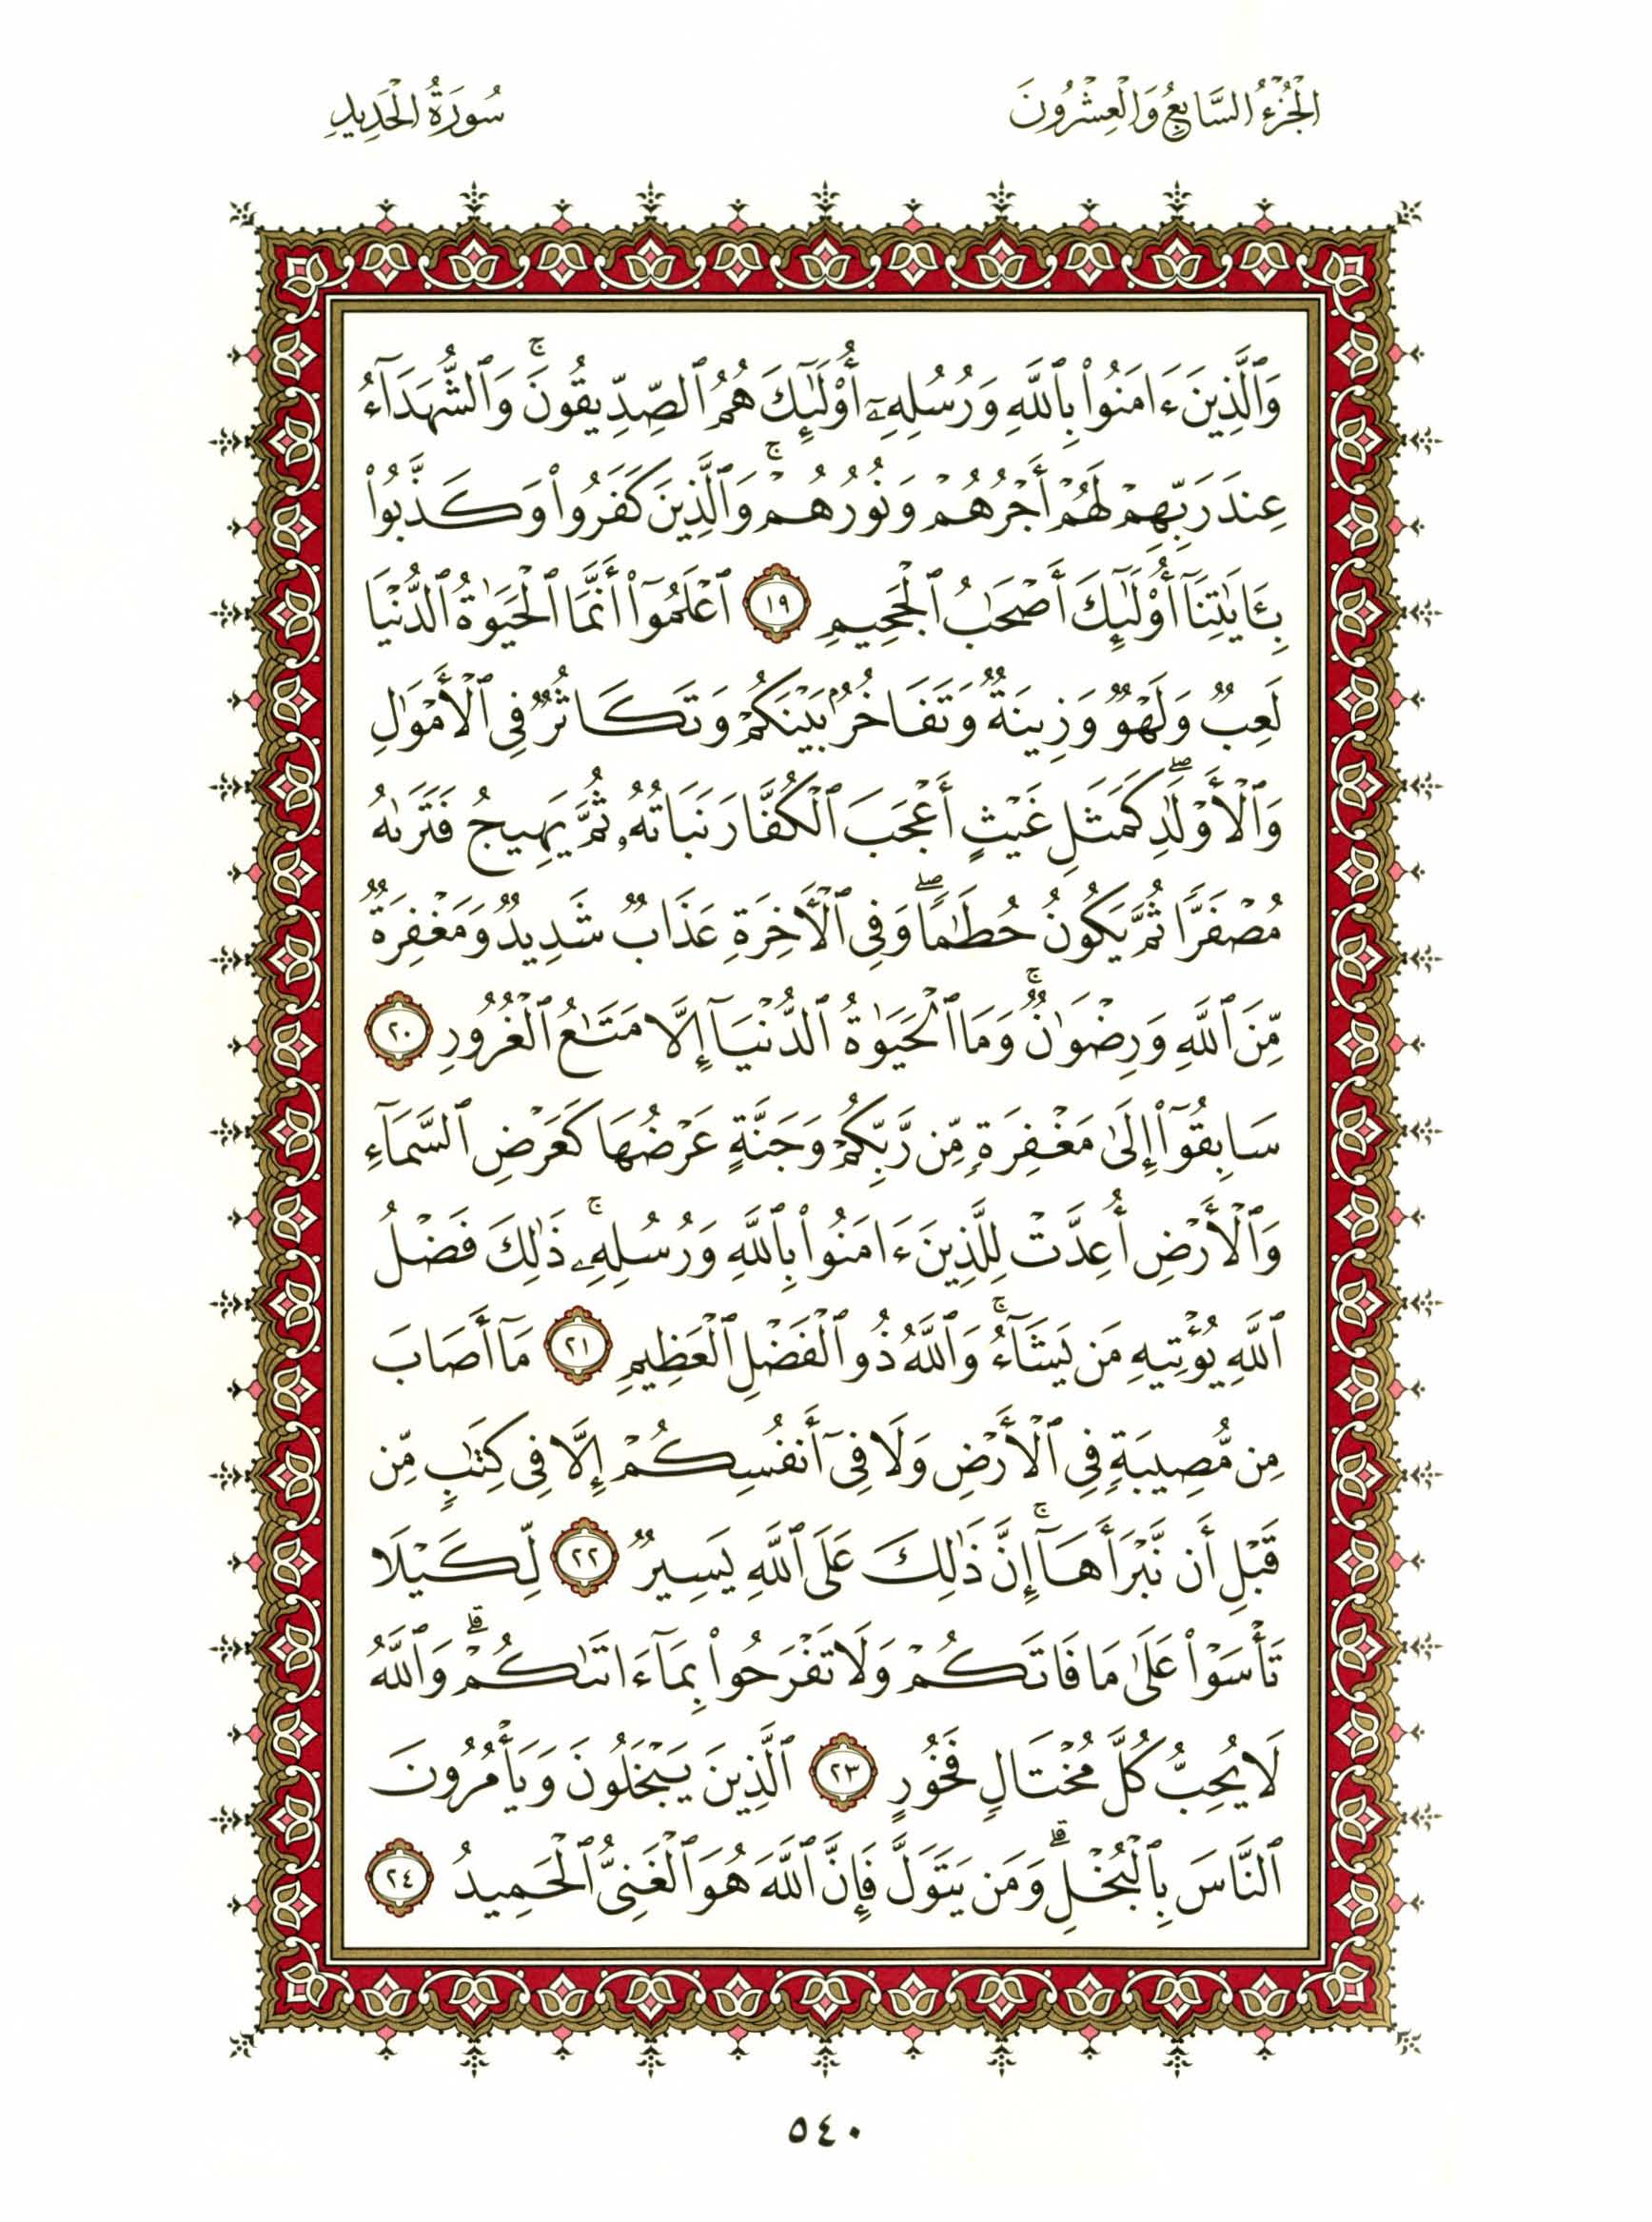 الجُزْءُ السَّابِعُ وَالْعِشْرُونَ
سُورَةُ الْحَدِيدِ
وَٱلَّذِينَ ءَامَنُوا۟ بِٱللَّهِ وَرُسُلِهِۦٓ أُو۟لَـٰٓئِكَ هُمُ ٱلصِّدِّيقُونَ ۚ وَٱلشُّهَدَآءُ
عِندَ رَبِّهِمْ لَهُمْ أَجْرُهُمْ وَنُورُهُمْ ۚ وَٱلَّذِينَ كَفَرُوا۟ وَكَذَّبُوا۟
بِـَٔايَـٰتِنَآ أُو۟لَـٰٓئِكَ أَصْحَـٰبُ ٱلْجَحِيمِ ١٩ ٱعْلَمُوٓا۟ أَنَّمَا ٱلْحَيَوٰةُ ٱلدُّنْيَا
لَعِبٌ وَلَهْوٌ وَزِينَةٌ وَتَفَاخُرٌۢ بَيْنَكُمْ وَتَكَاثُرٌ فِى ٱلْأَمْوَٰلِ
وَٱلْأَوْلَـٰدِ ۖ كَمَثَلِ غَيْثٍ أَعْجَبَ ٱلْكُفَّارَ نَبَاتُهُۥ ثُمَّ يَهِيجُ فَتَرَىٰهُ
مُصْفَرًّا ثُمَّ يَكُونُ حُطَـٰمًا ۖ وَفِى ٱلْـَٔاخِرَةِ عَذَابٌ شَدِيدٌ وَمَغْفِرَةٌ
مِّنَ ٱللَّهِ وَرِضْوَٰنٌ ۚ وَمَا ٱلْحَيَوٰةُ ٱلدُّنْيَآ إِلَّا مَتَـٰعُ ٱلْغُرُورِ ٢٠
سَابِقُوٓا۟ إِلَىٰ مَغْفِرَةٍ مِّن رَّبِّكُمْ وَجَنَّةٍ عَرْضُهَا كَعَرْضِ ٱلسَّمَآءِ
وَٱلْأَرْضِ أُعِدَّتْ لِلَّذِينَ ءَامَنُوا۟ بِٱللَّهِ وَرُسُلِهِۦ ۚ ذَٰلِكَ فَضْلُ
ٱللَّهِ يُؤْتِيهِ مَن يَشَآءُ ۚ وَٱللَّهُ ذُو ٱلْفَضْلِ ٱلْعَظِيمِ ٢١ مَآ أَصَابَ
مِن مُّصِيبَةٍ فِى ٱلْأَرْضِ وَلَا فِىٓ أَنفُسِكُمْ إِلَّا فِى كِتَـٰبٍ مِّن
قَبْلِ أَن نَّبْرَأَهَآ ۚ إِنَّ ذَٰلِكَ عَلَى ٱللَّهِ يَسِيرٌ ٢٢ لِّكَيْلَا
تَأْسَوْا۟ عَلَىٰ مَا فَاتَكُمْ وَلَا تَفْرَحُوا۟ بِمَآ ءَاتَىٰكُمْ ۗ وَٱللَّهُ
لَا يُحِبُّ كُلَّ مُخْتَالٍ فَخُورٍ ٢٣ ٱلَّذِينَ يَبْخَلُونَ وَيَأْمُرُونَ
ٱلنَّاسَ بِٱلْبُخْلِ ۗ وَمَن يَتَوَلَّ فَإِنَّ ٱللَّهَ هُوَ ٱلْغَنِىُّ ٱلْحَمِيدُ ٢٤
٥٤٠